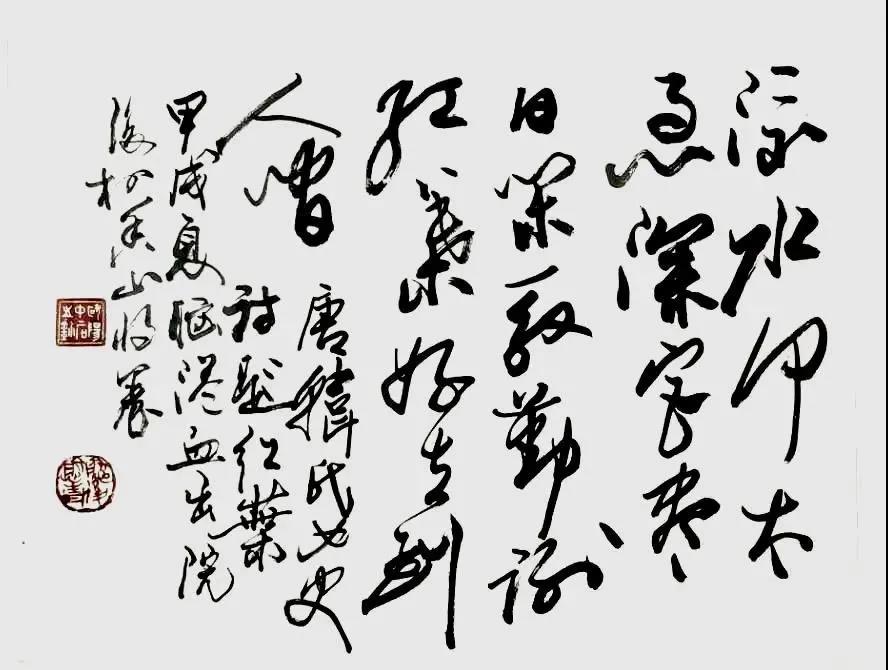 流水何太
急深宮盡
日閑殷勤謝
紅葉好去到
人間
唐韓氏女史
詩題紅葉
甲戌夏腦溢血出院
後於香山將養